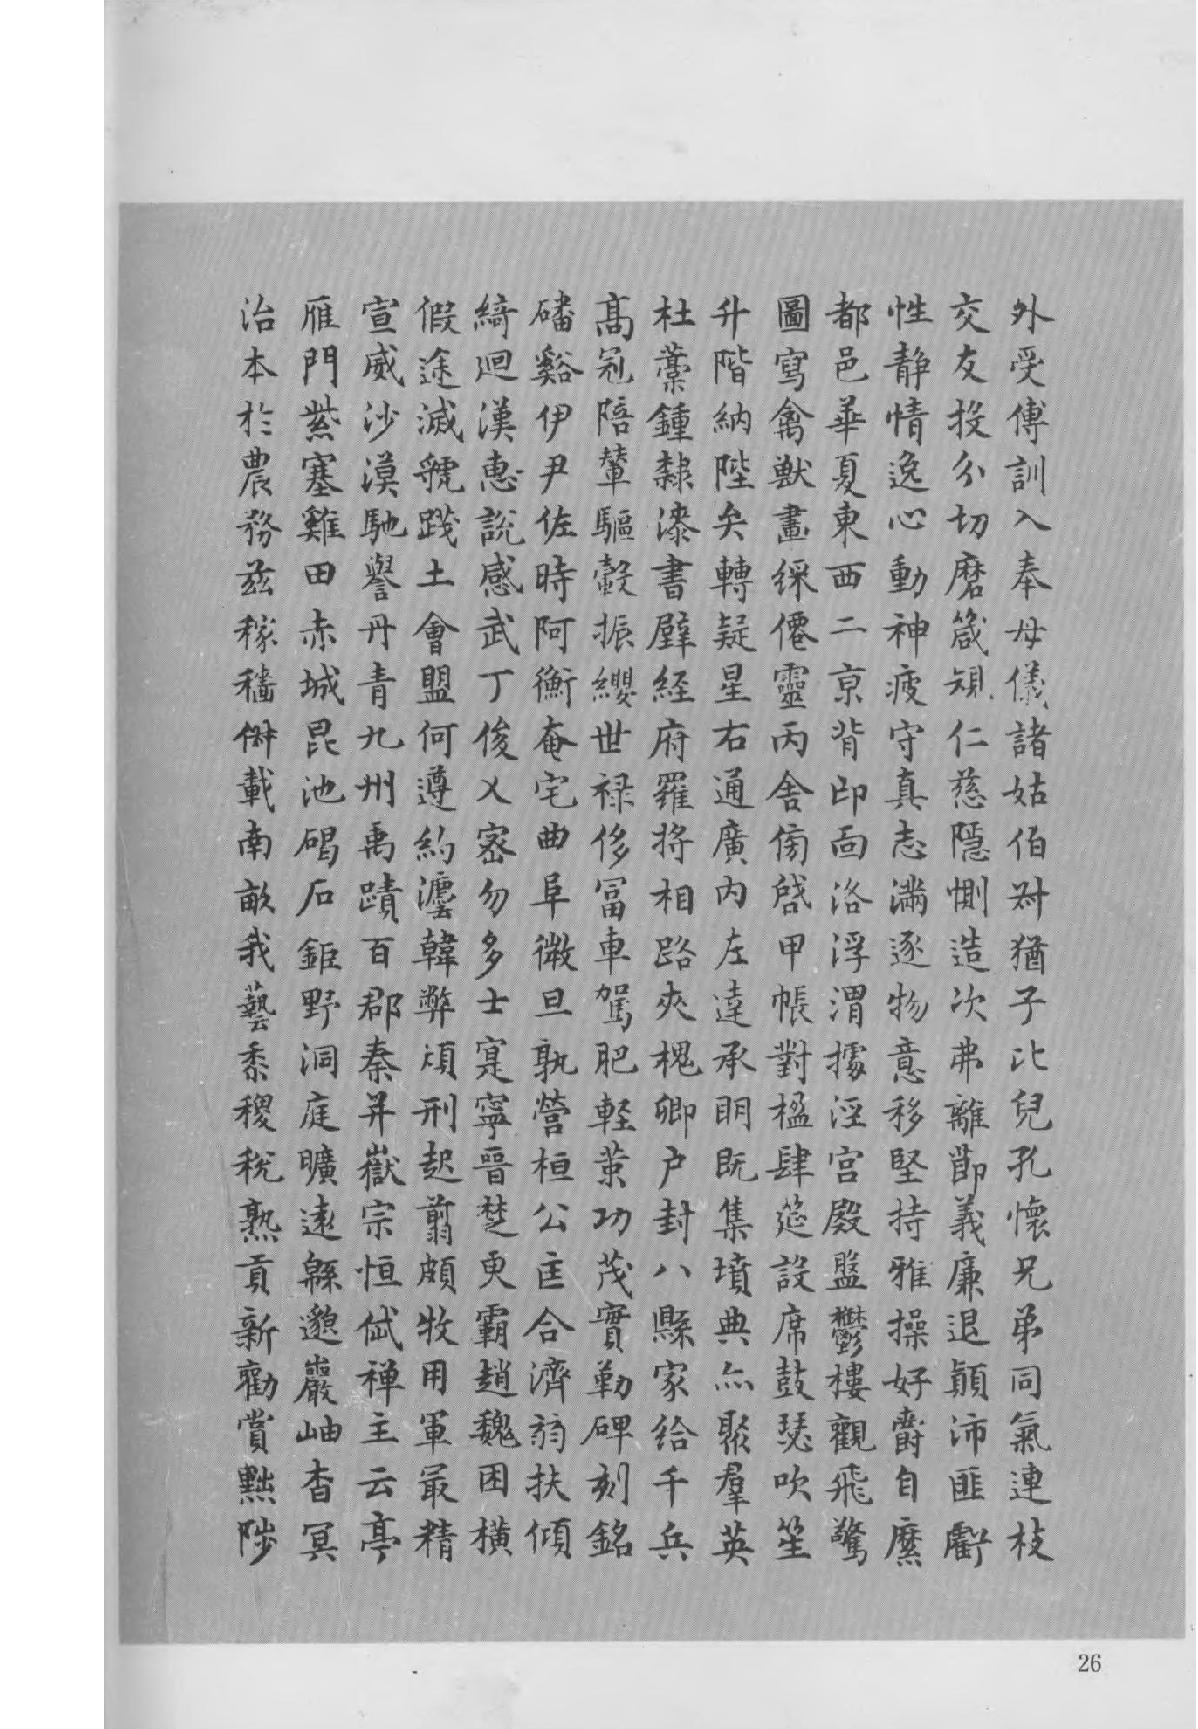 外受傅訓入奉母儀諸姑伯叔猶子比兒孔懷兄弟同氣連枝
交友投分切磨箴規仁慈隱惻造次弗離節義廉退顛沛匪虧
性静情逸心動神疲守真志滿逐物意移堅持雅操好爵自縻
都邑華夏東西二京背邙面洛浮渭據涇宮殿盤鬱樓觀飛驚
圖寫禽獸畫綵僊靈丙舍傍啓甲帳對楹肆筵設席鼓瑟吹笙
升階納陛弁轉疑星右通廣内左達承明既集墳典亦聚羣英
杜藁鍾隸漆書壁經府羅将相路夾槐卿户封八縣家給千兵
高冠陪輦驅轂振纓世禄侈富車駕肥軽策功茂實勒碑刻銘
磻谿伊尹佐時阿衡奄宅曲阜微旦孰營桓公匡合濟弱扶傾
綺迴漢惠説感武丁俊乂密勿多士寔寧晉楚更霸趙魏困横
假途滅虢踐土會盟何遵約灋韓弊煩刑起翦頗牧用軍最精
宣威沙漠馳譽丹青九州禹蹟百郡秦并嶽宗恒岱禅主云亭
雁門紫塞雞田赤城昆池碣石鉅野洞庭曠遠緜邈巖岫杳冥
治本於農務兹稼穡俶載南畝我藝黍稷税熟貢新勸賞黜陟
26